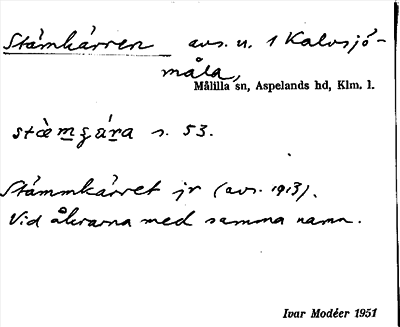 Stämkärren avs. u. 1 Kalvsjö-
måla,
Målilla sn, Aspelands hd, Klm. l.
s. 53.
Stämmkärret jr (avs. 1913).
Vid åkrarna med samma namn.
Ivar Modéer 1951